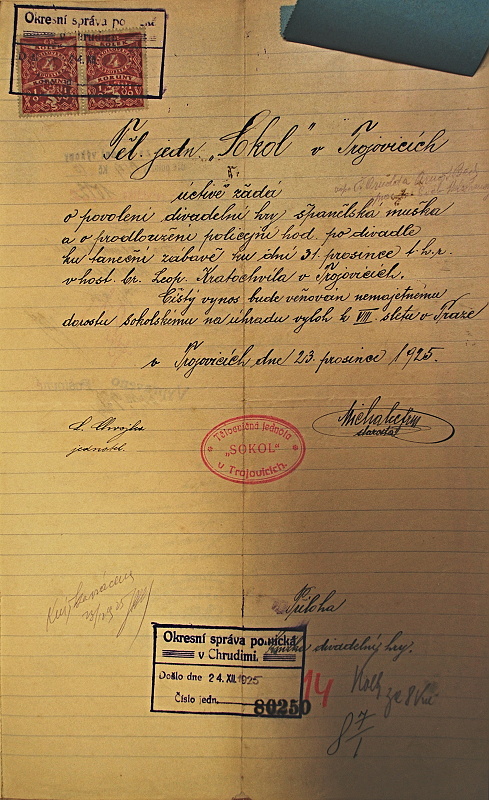 Okresní správa politická
v Chrudimi
4
4
KORUNY
KORUNY
Těl. jedn. „Sokol“ v Trojovicích
uctivě žádá
o povolení divadelní hry Španělská muška
a o prodloužení policejní hod. po divadle
ku taneční zábavě ku dni 31. prosince t.h.r.
v host. br. Leop. Kratochvíla v Trojovicích.
Čistý výnos bude věnován nemajetnému
dorostu sokolskému na úhradu výloh k VIII. sletu v Praze
v Trojovicích dne 23. prosince 1925.
jednatel.
starosta
Tělocvičná jednota
„SOKOL“
v Trojovicích.
Příloha
Kniha divadelný hry.
Okresní správa politická
v Chrudimi.
Došlo dne 24. XII. 1925
Číslo jedn. 80250
14
ze 8 Kč
8 7/1